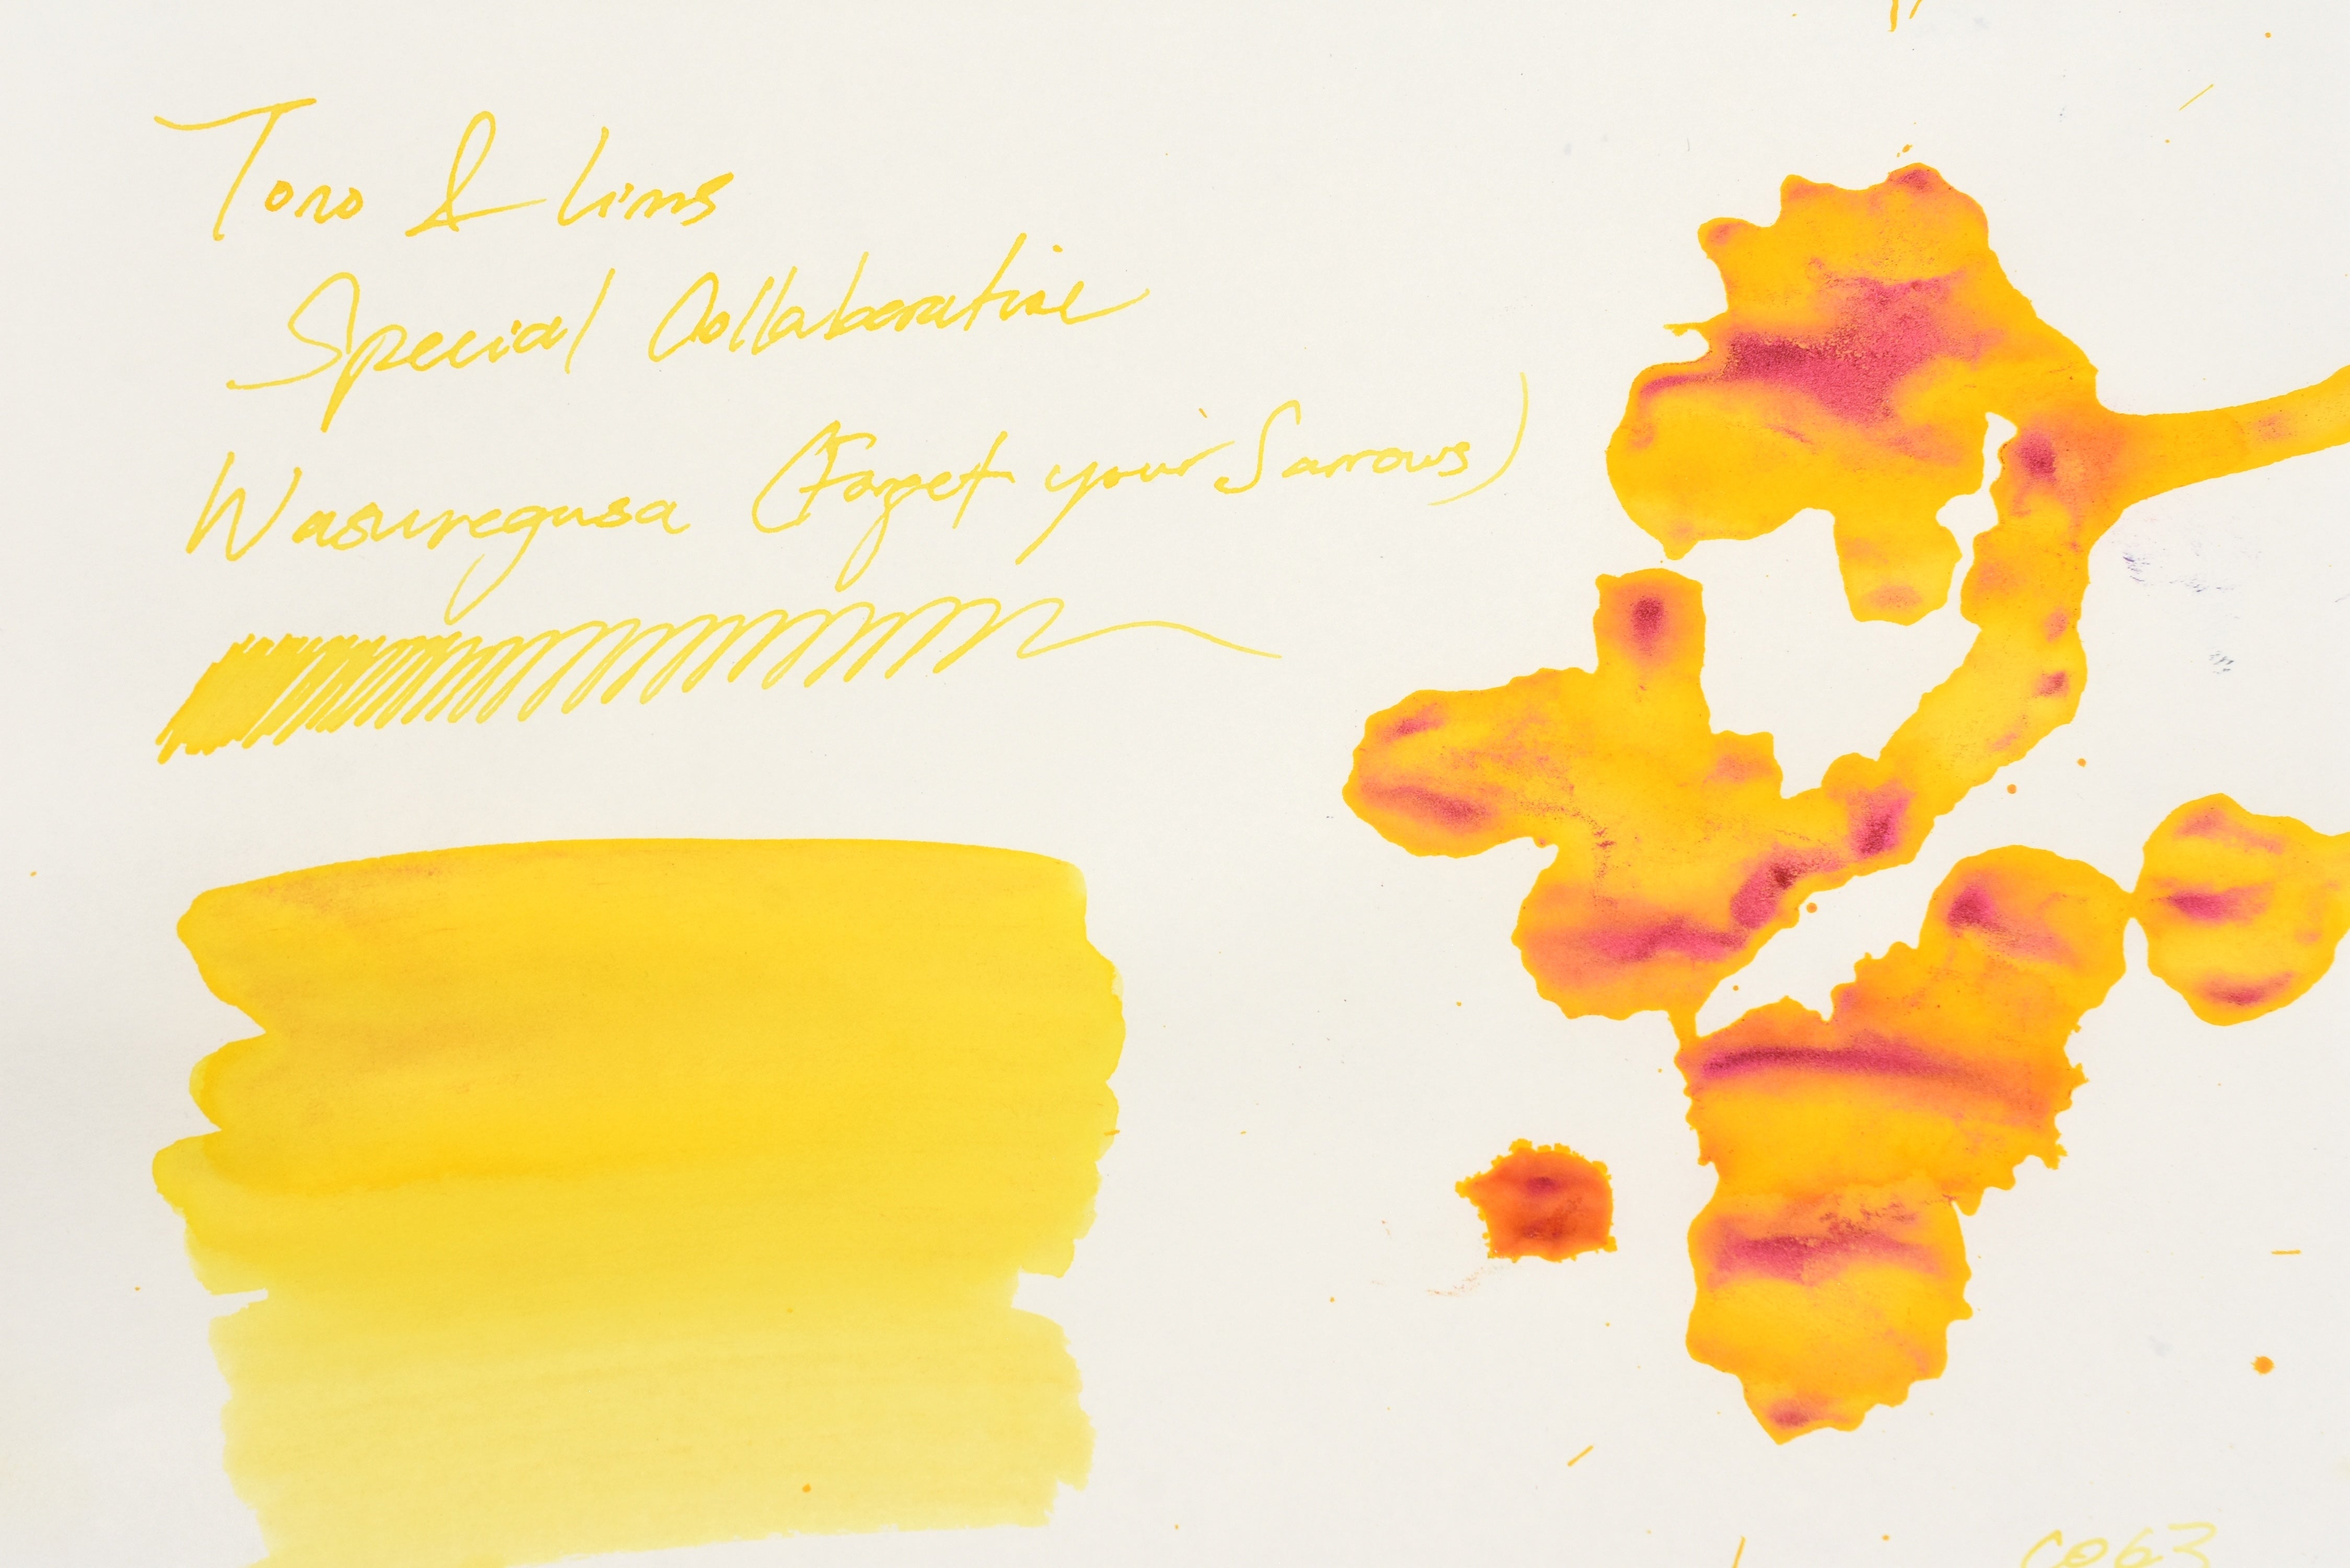 Toro & Lims
Special Collaborative
Wasuregusa (Forget your Sarrows)
C063